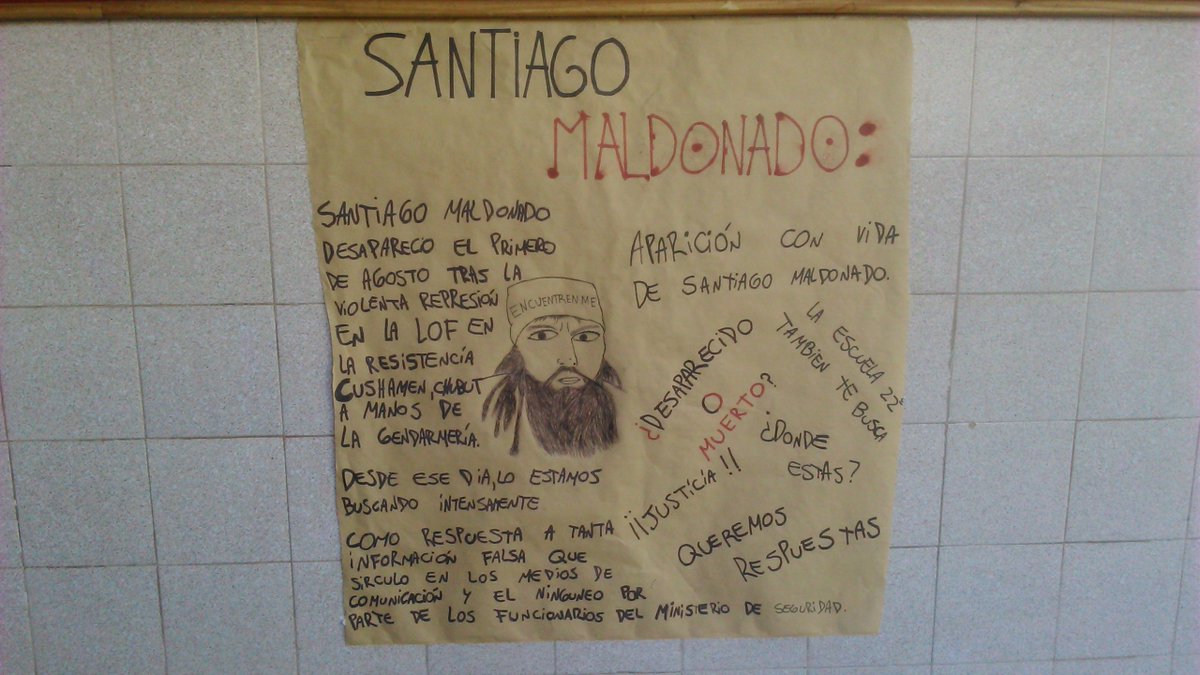 SANTIAGO
MALDONADO:
SANTIAGO MALDONADO
DESAPARECIO EL PRIMERO
DE AGOSTO TRAS LA
VIOLENTA REPRESIÓN
EN LA LOF EN
LA RESISTENCIA
CUSHAMEN, CHUBUT
A MANOS DE
LA GENDARMERÍA.
DESDE ESE DIA, LO ESTAMOS
BUSCANDO INTENSAMENTE
COMO RESPUESTA A TANTA
INFORMACIÓN FALSA QUE
SIRCULO EN LOS MEDIOS DE
COMUNICACIÓN Y EL NINGUNEO POR
PARTE DE LOS FUNCIONARIOS DEL MINISTERIO DE SEGURIDAD.
ENCUENTRENME
APARICIÓN CON VIDA
DE SANTIAGO MALDONADO.
LA ESCUELA 22
TAMBIEN TE BUSCA
¿DESAPARECIDO
O
MUERTO?
¿DONDE
ESTAS?
¡¡JUSTICIA!!
QUEREMOS
RESPUESTAS